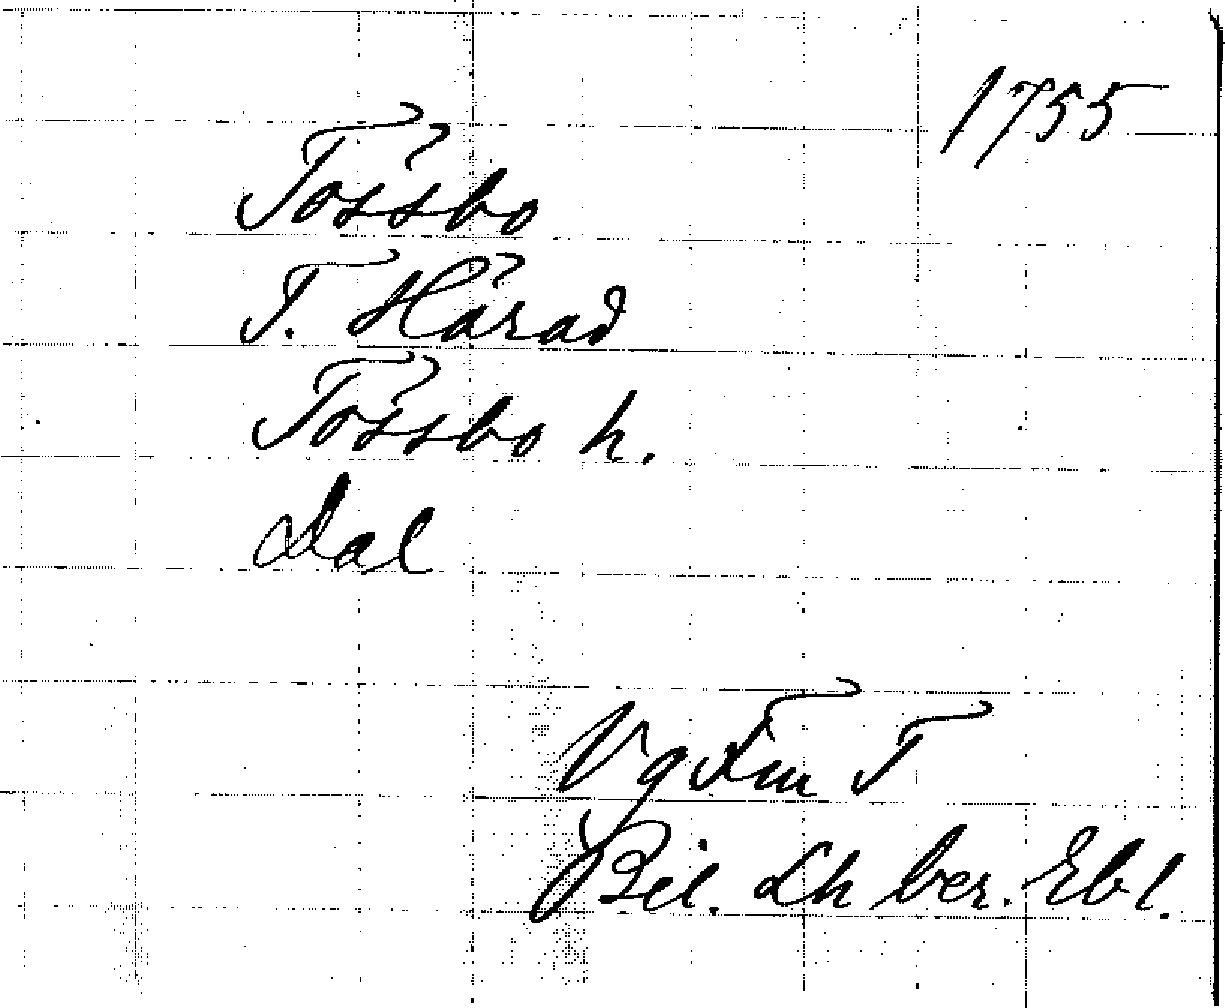 1755
Tössbo
T. Härad
Tössbo h.
Dal
Vg Fm T
Bil. Lh ber. Ebl.